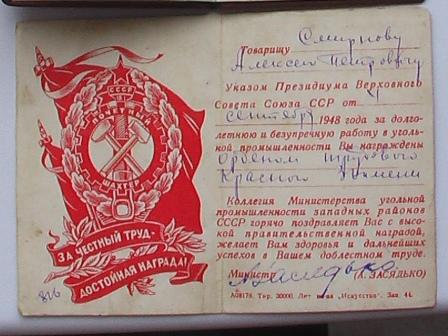 СССР
ПОЧЕТНЫЙ
ШАХТЕР
ЗА ЧЕСТНЫЙ ТРУД-
ДОСТОЙНАЯ НАГРАДА!
816
Товарищу Смирнову
Алексею Петровичу
Указом Президиума Верховного
Совета Союза ССР от 4
сентября 1948 года за долго-
летнюю и безупречную работу в уголь-
ной промышленности Вы награждены
Орденом Трудового
Красного Знамени
Коллегия Министерства угольной
промышленности западных районов
СССР горячо поздравляет Вас с высо-
кой правительственной наградой,
желает Вам здоровья и дальнейших
успехов в Вашем доблестном труде.
Министр Засядько (А. ЗАСЯДЬКО)
А08176. Тир. 30000. "Искусство". Зак. 44.